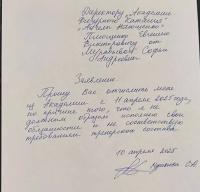 Директору "Академии
Фигурного Катания"
"Ангелы Плющенко"
Плющенко Евгению
Викторовичу от
Муравьёвой Софьи
Андреевны
Заявление
Прошу Вас отчислить меня
из Академии с 11 апреля 2025 года,
по причине того, что я не
должным образом исполняю свои
обязанности и не соответствую
требованиям тренерского состава.
10 апреля 2025